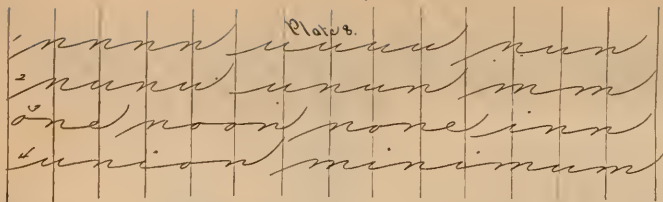 Plate 8.
1 nnnn uuuu nun
2 nunu unun m m
3 one noon none inn
4 union minimum